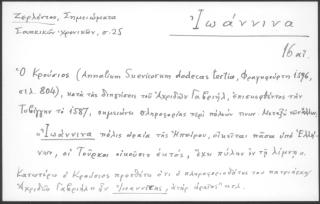 Ζερλέντου, Σημειώματα
Σουηκικῶν χρονικῶν, σ. 25
Ἰωάννινα
16 αἰ.
Ὁ Κρούσιος (Annalium Suevicorum dodecas tertia, Φραγκφούρτη 1596,
σελ. 804), κατὰ τὰς διηγήσεις τοῦ Ἀχριδῶν Γαβριήλ, ἐπισκεφθέντος τὴν
Τυβίγγην τὸ 1587, σημειώνει πληροφορίας περὶ πόλεών τινων. Μεταξὺ τῶν ἄλλων,
«Ἰωάννινα πόλις ὡραία τῆς Ἠπείρου, οἰκεῖται πᾶσα ὑπὸ Ἑλλή-
νων, οἱ Τοῦρκοι οἰκοῦσιν ἐκτός, ἔχει πύλην ἐν τῇ λίμνῃ».
Κατωτέρω ὁ Κρούσιος προσθέτει ὅτι ὁ πληροφοριοδότης του πατριάρχης
Ἀχριδῶν Γαβριὴλ ἦν Ἰωαννίτης,